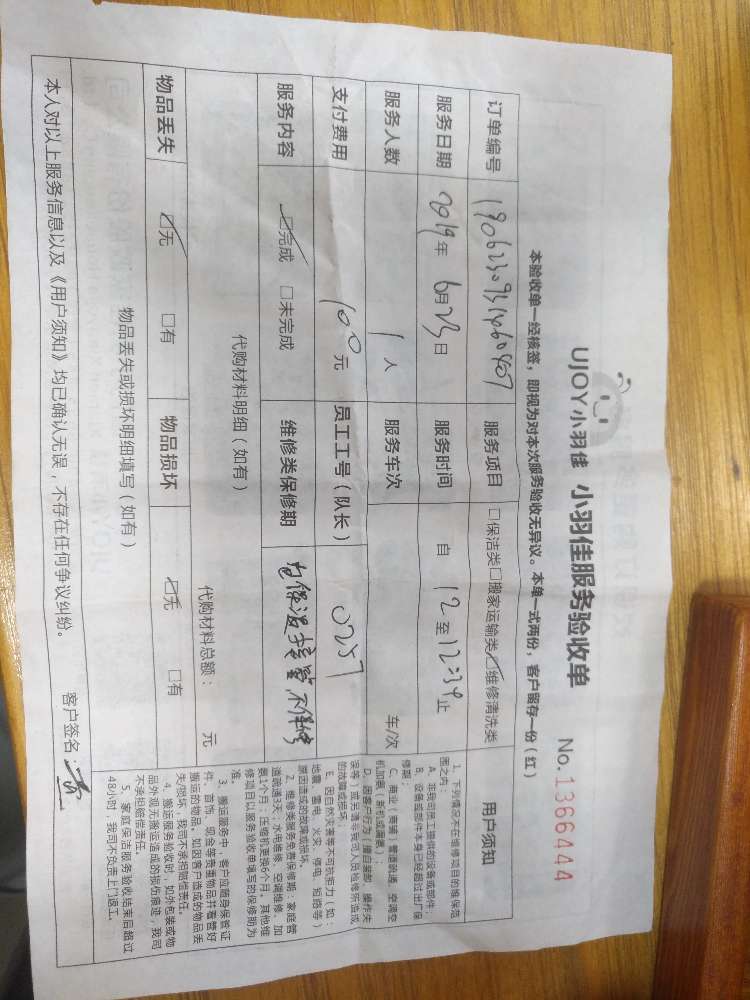 UJOY小羽佳 小羽佳服务验收单 No.1366444
本验收单一经核签，即视为对本次服务验收无异议。本单一式两份，客户留存一份（红）
订单编号 服务项目 □保洁类□搬家运输类☑维修清洗类 用户须知
服务日期 2019年6月23日 服务时间 自12至12:34止
服务人数 1人 服务车次 车/次
支付费用 100元 员工工号（队长） 0257
服务内容 ☑完成 □未完成 维修类保修期
代购材料明细（如有） 代购材料总额： 元
物品丢失 ☑无 □有 物品损坏 ☑无 □有
物品丢失或损坏明细填写（如有）
本人对以上服务信息以及《用户须知》均已确认无误，不存在任何争议纠纷。 客户签名：
1、下列情况不在维修项目的维保范
围之内：
A、非我司员工提供的设备或部件；
B、设备或部件本身已经超过出厂保
修期；
C、商业（商铺）管道疏通、空调空
机加氟（新机或漏氟）；
D、因客户行为（擅自装卸、操作失
误等）或另请非我司人员检修所造成
的故障或损坏；
E、因自然灾害等不可抗拒力（如：
地震、雷电、火灾、停电、短路等）
原因造成的故障或损坏。
2、维修类服务免费保修期：家庭管
道疏通3天；水电维修、空调维修、加
氟1个月；压缩机更换6个月，其他维
修项目以服务验收单填写的保修期为
准。
3、搬运服务中，客户应随身保管证
件、首饰、现金等贵重物品并看管好
搬运的物品，如因客户造成的物品丢
失/损坏，我司不承担赔偿责任。
4、搬运服务验收时，如外包装或物
品外观无搬运造成的损伤痕迹，我司
不承担赔偿责任。
5、家庭保洁服务验收结束后超过
48小时，我司不负责上门返工。